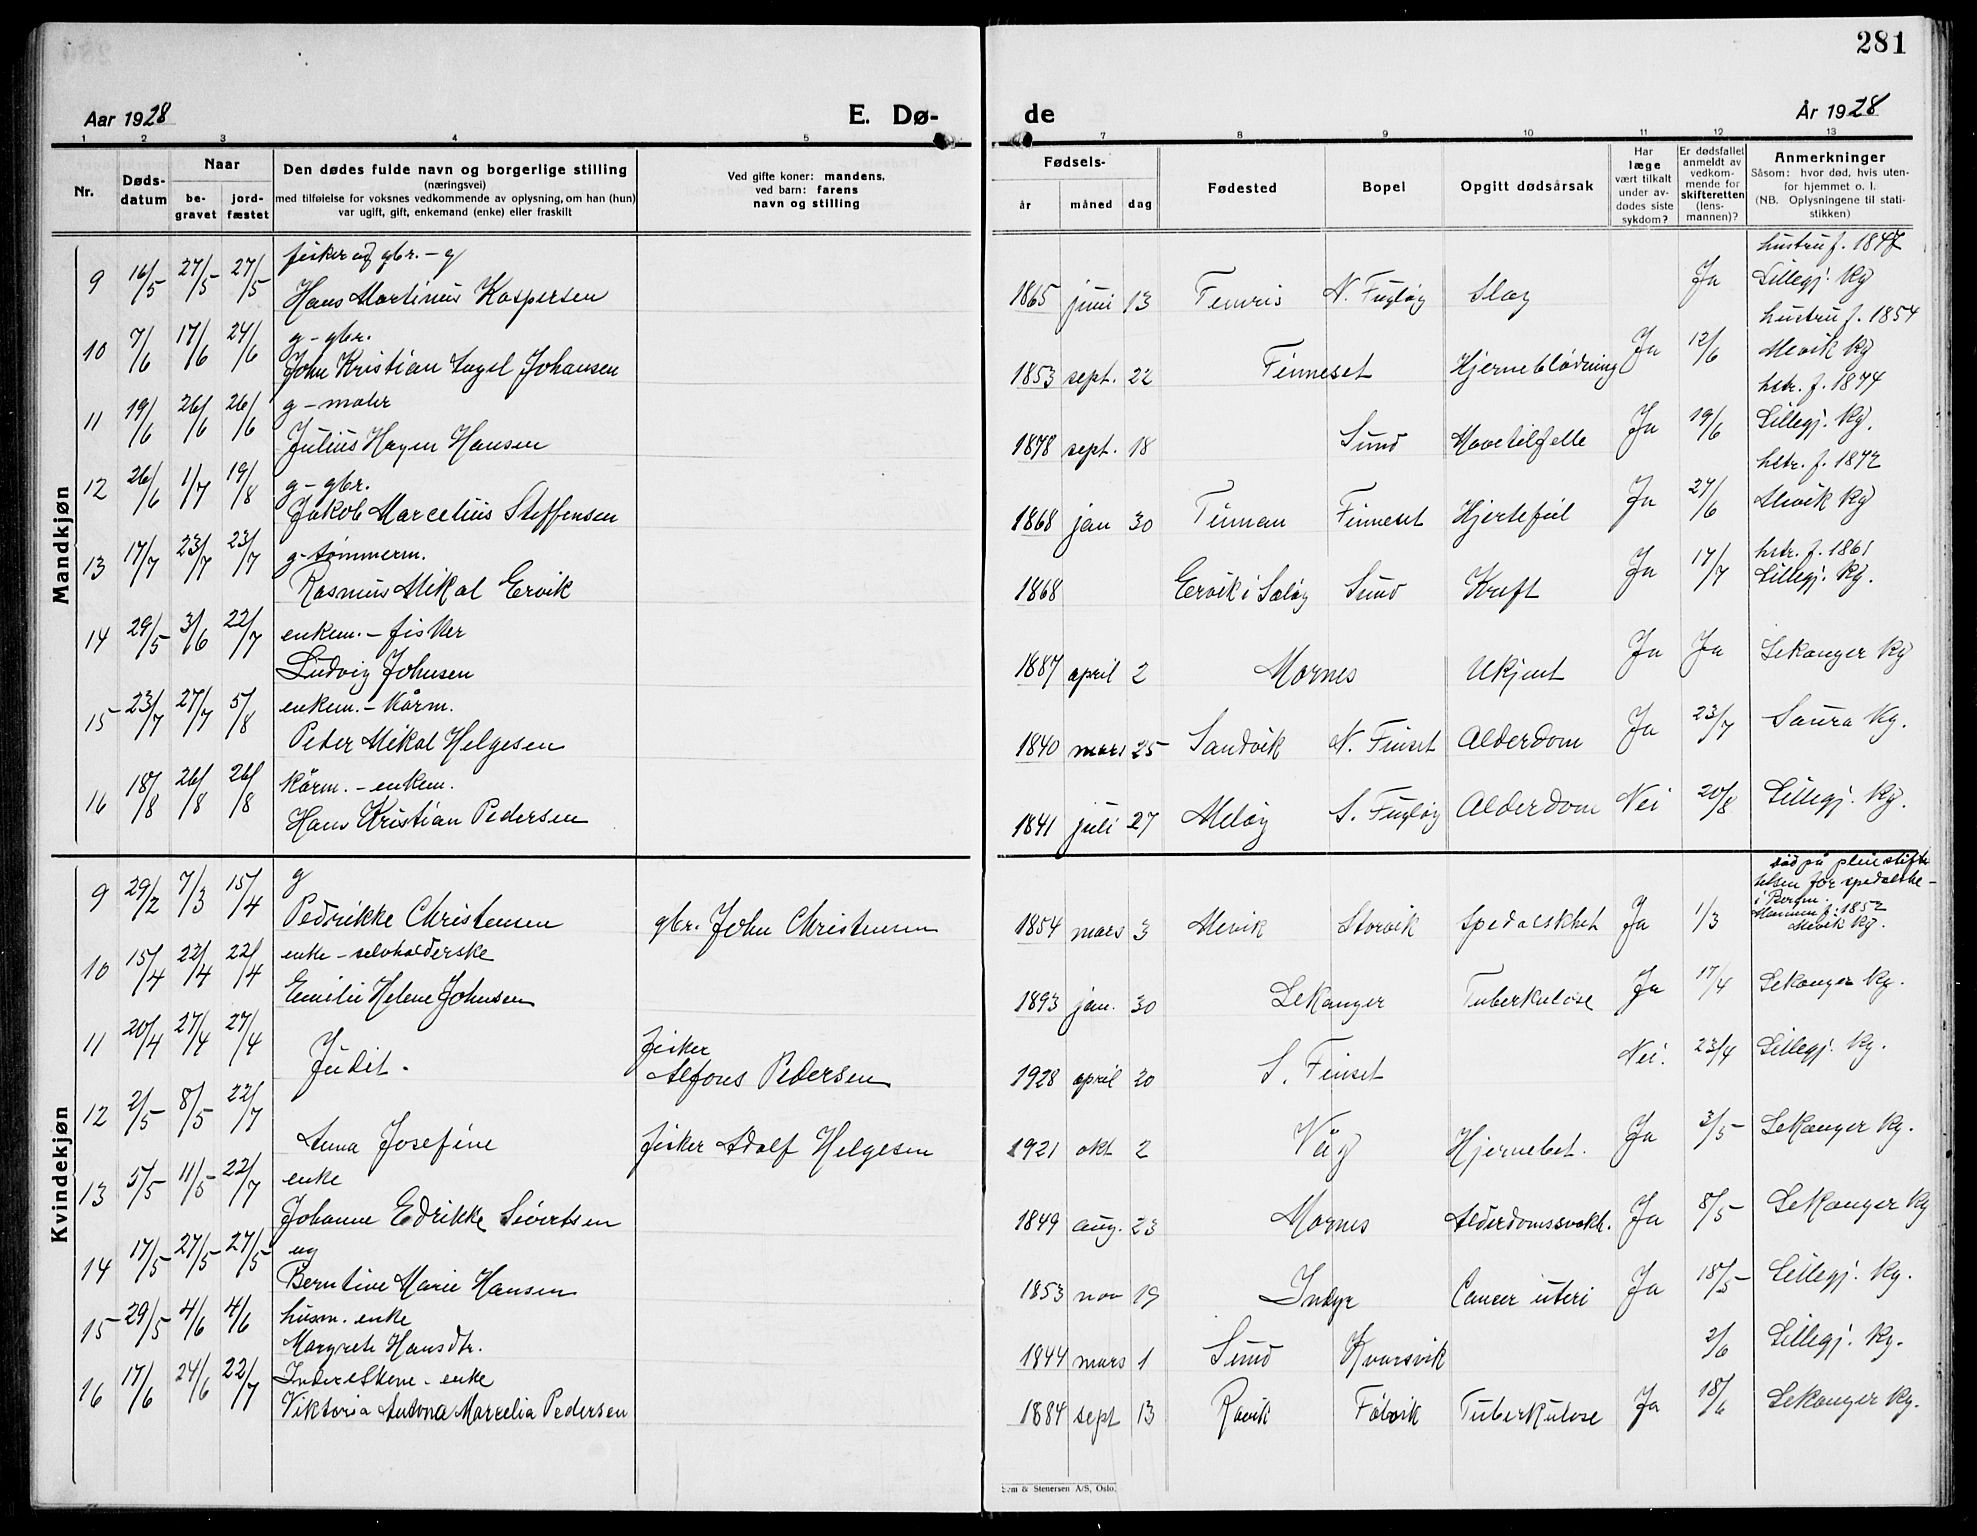 281
Aar 1928 E. Dø- de År 1928
1 2 3 4 5 7 8 9 10 11 12 13
Nr. Døds-datum Naar be-gravet jord-fæstet Den dødes fulde navn og borgerlige stilling (næringsvei) med tilføielse for voksnes vedkommende av oplysning, om han (hun) var ugift, gift, enkemand (enke) eller fraskilt Ved gifte koner: mandens, ved barn: farens navn og stilling Fødsels- år måned dag Fødested Bopel Opgitt dødsårsak Har læge vært tilkalt under av-dødes siste sykdom? Er dødsfallet anmeldt av vedkom-mende for skifteretten (lens-mannen)? Anmerkninger Såsom: hvor død, hvis uten-for hjemmet o. l. (NB. Oplysningene til stati-stikken)
Mandkjøn
fisker og gbr. - g hustru f. 1847
9 16/5 27/5 27/5 Hans Martinus Kaspersen 1865 juni 13 N. Fugløy Slag Ja Lillegj. kg
g - gbr. hustru f. 1854
10 7/6 17/6 24/6 John Kristian Engel Johansen 1853 sept. 22 Finneset Hjerneblødning Ja 12/6 Mevik kg
g - maler hstr. f. 1874
11 19/6 26/6 26/6 Julius Hagen Hansen 1878 sept. 18 Sund Mavetilfelle Ja 19/6 Lillegj. kg.
g - gbr. hstr. f. 1872
12 26/6 1/7 19/8 Jakob Marcelius Steffensen 1868 jan 30 Finneset Hjertefeil Ja 27/6 Mevik kg
g - tømmerm. hstr. f. 1861
13 17/7 23/7 23/7 Rasmus Mikal Ervik 1868 Ervik i Sund Kreft Ja 17/7 Lillegj. kg.
enkem. - fisker
14 29/5 3/6 22/7 Ludvig Johnsen 1887 april 2 Mornes Ukjent Ja Ja Lekanger kg
enkem. - kårm.
15 23/7 27/7 5/8 Peter Mikal Helgesen 1840 mars 25 Sandvik N. Finset Alderdom Ja 23/7 Saura kg.
kårm. - enkem.
16 18/8 26/8 26/8 Hans Kristian Pedersen 1841 juli 27 Meløy S. Fugløy Alderdom Nei 20/8 Lillegj. kg.
Kvindekjøn
g død på pleiestiftelsen for spedalske - i Bergen.
9 29/2 7/3 15/4 Pedrikke Christensen gbr. John Christensen 1854 mars 3 Mevik Storvik Spedalskhet Ja 1/3 Mannen f. 1852 Mevik kg.
enke - selvholderske
10 15/4 22/4 22/4 Emilie Helene Johnsen 1893 jan. 30 Lekanger Tuberkulose Ja 17/4 Lekanger kg.
fisker
11 20/4 27/4 27/4 Judit. Alfons Pedersen 1928 april 20 S. Finset Nei. 23/4 Lillegj. kg.
12 2/5 8/5 22/7 Anna Josefine fisker Adolf Helgesen 1921 okt 2 Våg Hjernebet. Ja 3/5 Lekanger kg.
enke
13 5/5 11/5 22/7 Johanne Edrikke Sivertsen 1849 aug. 23 Mornes Alderdomssvakh. Ja 8/5 Lekanger kg
ug
14 17/5 27/5 27/5 Berntine Marie Hansen 1853 nov 19 Indyr Cancer uteri Ja 18/5 Lillegj. kg.
husm. enke
15 29/5 4/6 4/6 Margrete Hansdtr. 1844 mars 1 Sund Kvarsvik 2/6 Lillegj. kg.
Inderstkone - enke
16 17/6 24/6 22/7 Viktoria Antona Marcelia Pedersen 1884 sept 13 Røvik Tuberkulose Ja 18/6 Lekanger kg.
Sem & Stenersen A/S, Oslo.